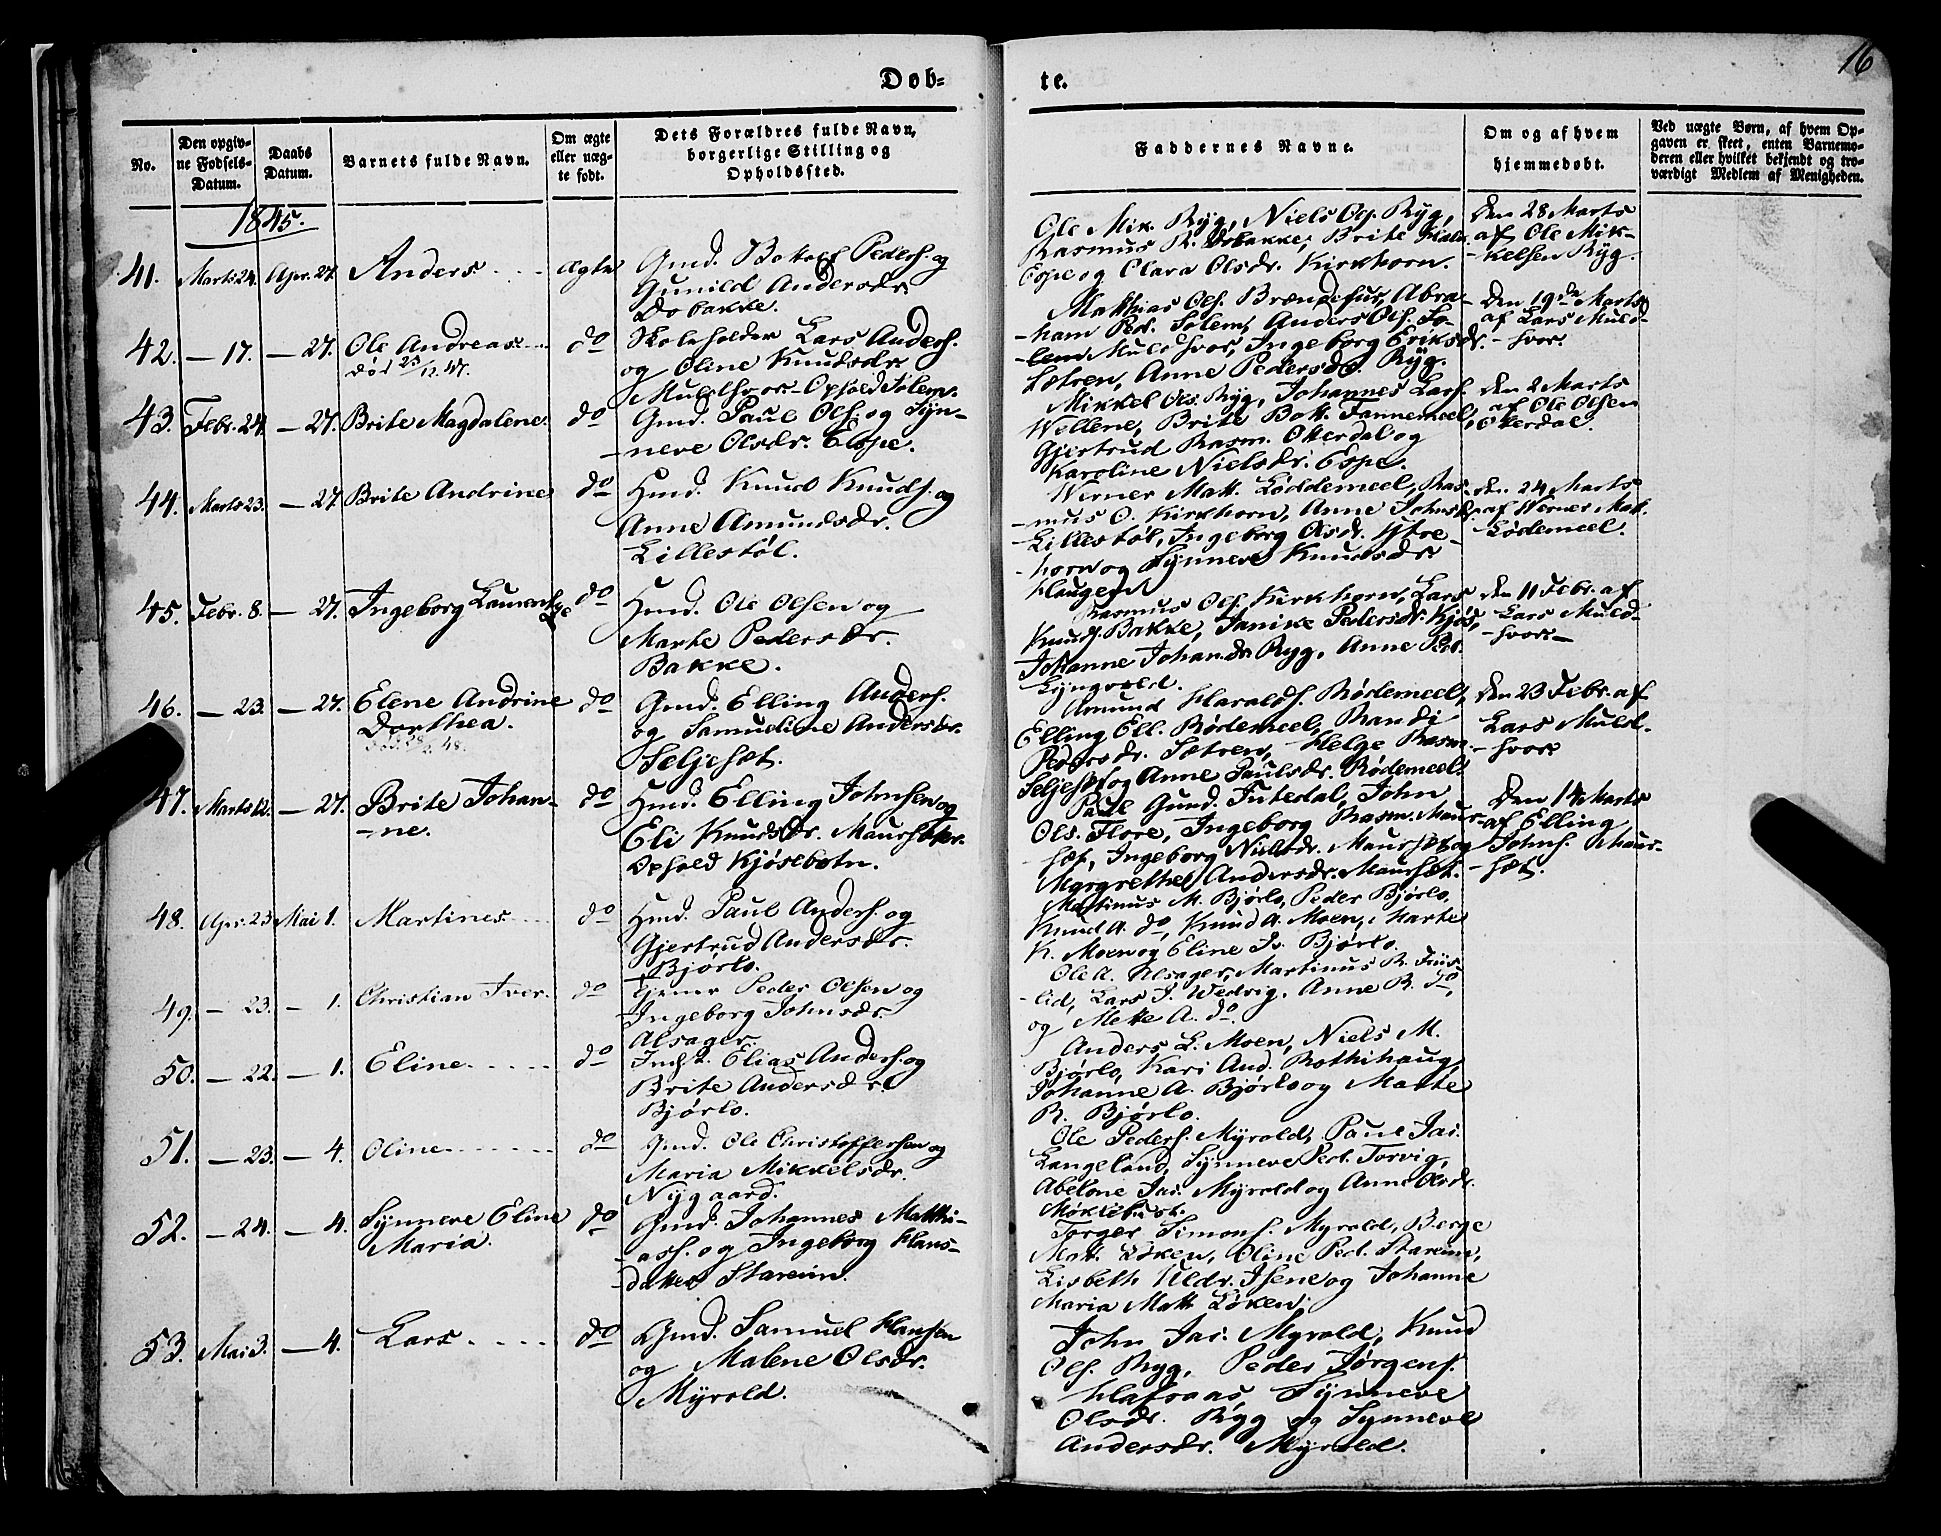 16
Døb-
te.
No.
Den opgiv-
ne Fødsels-
Datum.
Daabs
Datum.
Barnets fulde Navn.
Om ægte
eller uæg-
te født.
Dets Forældres fulde Navn,
borgerlige Stilling og
Opholdssted.
Faddernes Navne.
Om og af hvem
hjemmedøbt.
Ved uægte Børn, af hvem Op-
gaven er skeet, enten Barnemo-
deren eller hvilket bekjendt og tro-
værdigt Medlem af Menigheden.
1845.
41. Marts 24. Apr. 27. Anders ægte
Gmd. Pedersen og
Gunild Andersdr.
Dobakke.
Ole Mik. Ryg, Niels Ryg,
Rasmus R. Dobakke, Brite
Espe og Clara Olsdr. Kirkhorn.
Den 28 Marts
af Ole Mik-
kelsen Ryg.
42. — 17. — 27. Ole Andreas do
død 47.
Skoleholder Lars Anders.
og Oline Knudsdr.
Muldsvor - Ophold Solem.
Matthias Ols. Abra-
ham Ped. Solem, Anders Ols. So-
lem Muldsvor, Ingeborg Eriksdr.
Sætren, Anne Pedersdr. Ryg.
Den 19de Marts
af Lars Muld-
-svor.
43. Febr. 24. — 27. Brite Magdalene. do
Gmd. Paul Ols. og Syn-
neve Olsdr. Espe.
Mikkel Ols. Ryg, Johannes Lars.
Wellene, Brite Bott. Tannemeel,
Gjertrud Rasm. Otterdal og
Karoline Nielsdr. Espe.
Den 2 Marts
af Ole Olsen
Otterdal.
44. Marts 23. — 27. Brite Andrine do
Hmd. Knud Knuds. og
Anne Amundsdr.
Lillestøl.
Werner Matt. Løddemeel, Ras-
mus O. Kirkhorn, Anne Johnsdr.
Lillestøl, Ingeborg Olsdr. Ytre-
horn og Synneve Knudsdr.
Haugen
Den 24 Marts
af Werner Matt.
Lødemeel.
45. Febr. 8. — 27. Ingeborg do
Hmd. Ole Olsen og
Marte Pedersdr.
Bakke.
Rasmus Ols. Kirkhorn, Lars
Knuds. Bakke, Janike Pedersdr. Kjøs,
Johanne Johan.dr. Ryg, Anne Ped.
Lyngvold.
Den 11 Febr. af
Lars Muld-
-svor.
46. — 23. — 27. Elene Andrine do
Dorthea.
48.
Gmd. Elling Anders.
og Samueline Andersdr.
Seljeset.
Amund Haralds. Rødemeel,
Elling Ell. Rødemeel, Randi
Pedersdr. Sætren, Helge Rasm.
Seljeset og Anne Paulsdr. Rødemeel.
Den 23 Febr. af
Lars Muld-
-svor
47. Marts 12. — 27. Brite Johan- do
-ne.
Hmd. Elling Johnsen og
Eli Knudsdr. Maurset.
Ophold Kjøsebotn.
Paul Gund. Futedal, John
Ols. Flore, Ingeborg Rasm. Maur-
set, Ingeborg Nielsdr. Maurset og
Margrethe Andersdr. Maurset.
Den 14 Marts
af Elling
Johns. Maur-
-set.
48. Apr. 23. Mai 1. Martines do
Hmd. Paul Anders. og
Gjertrud Andersdr.
Bjørlo.
Martinus M. Bjørlo, Peder Bjørlo,
Knud A. do, Knud A. Moen, Marte
K. Moen og Eline Bjørlo.
49. — 23. — 1. Christian Iver. do
Tjener Peder Olsen og
Ingeborg Johnsdr.
Alsager
Ole A. Alsager, Martinus R. Friis-
lid, Lars J. Wedvig, Anne R. do,
og Mette A. do.
50. — 22. — 1. Eline do
Indst. Elias Anders. og
Brite Andersdr.
Bjørlo.
Anders L. Moen, Niels M.
Bjørlo, Kari And. Rothihaug,
Johanne A. Bjørlo og Marte
R. Bjørlo.
51. — 23. — 4. Oline do
Gmd. Ole Christoffersen og
Maria Mikkelsdr.
Nygaard.
Ole Peders. Myrold, Paul Jac.
Langeland, Synneve Ped. Torvig,
Abelone Jac. Myrold og Anne Olsdr.
Mokkebust.
52. — 24. — 4. Synneve Eline do
Maria.
Gmd. Johannes Matthi-
ass. og Ingeborg Hans-
datter Stareim.
Torger Simons. Myrold, Berge
Matt. Løken, Oline Ped. Stareim,
Lisbeth Isene og Johanne
Maria Matt. Løken.
53. Mai 3. — 4. Lars do
Gmd. Samuel Hansen
og Malene Olsdr.
Myrold.
John Jac. Myrold, Knud
Ols. Ryg, Peder Jørgens.
Hafsaas, Synneve
Olsdr. Ryg og Synneve
Andersdr. Myrold.